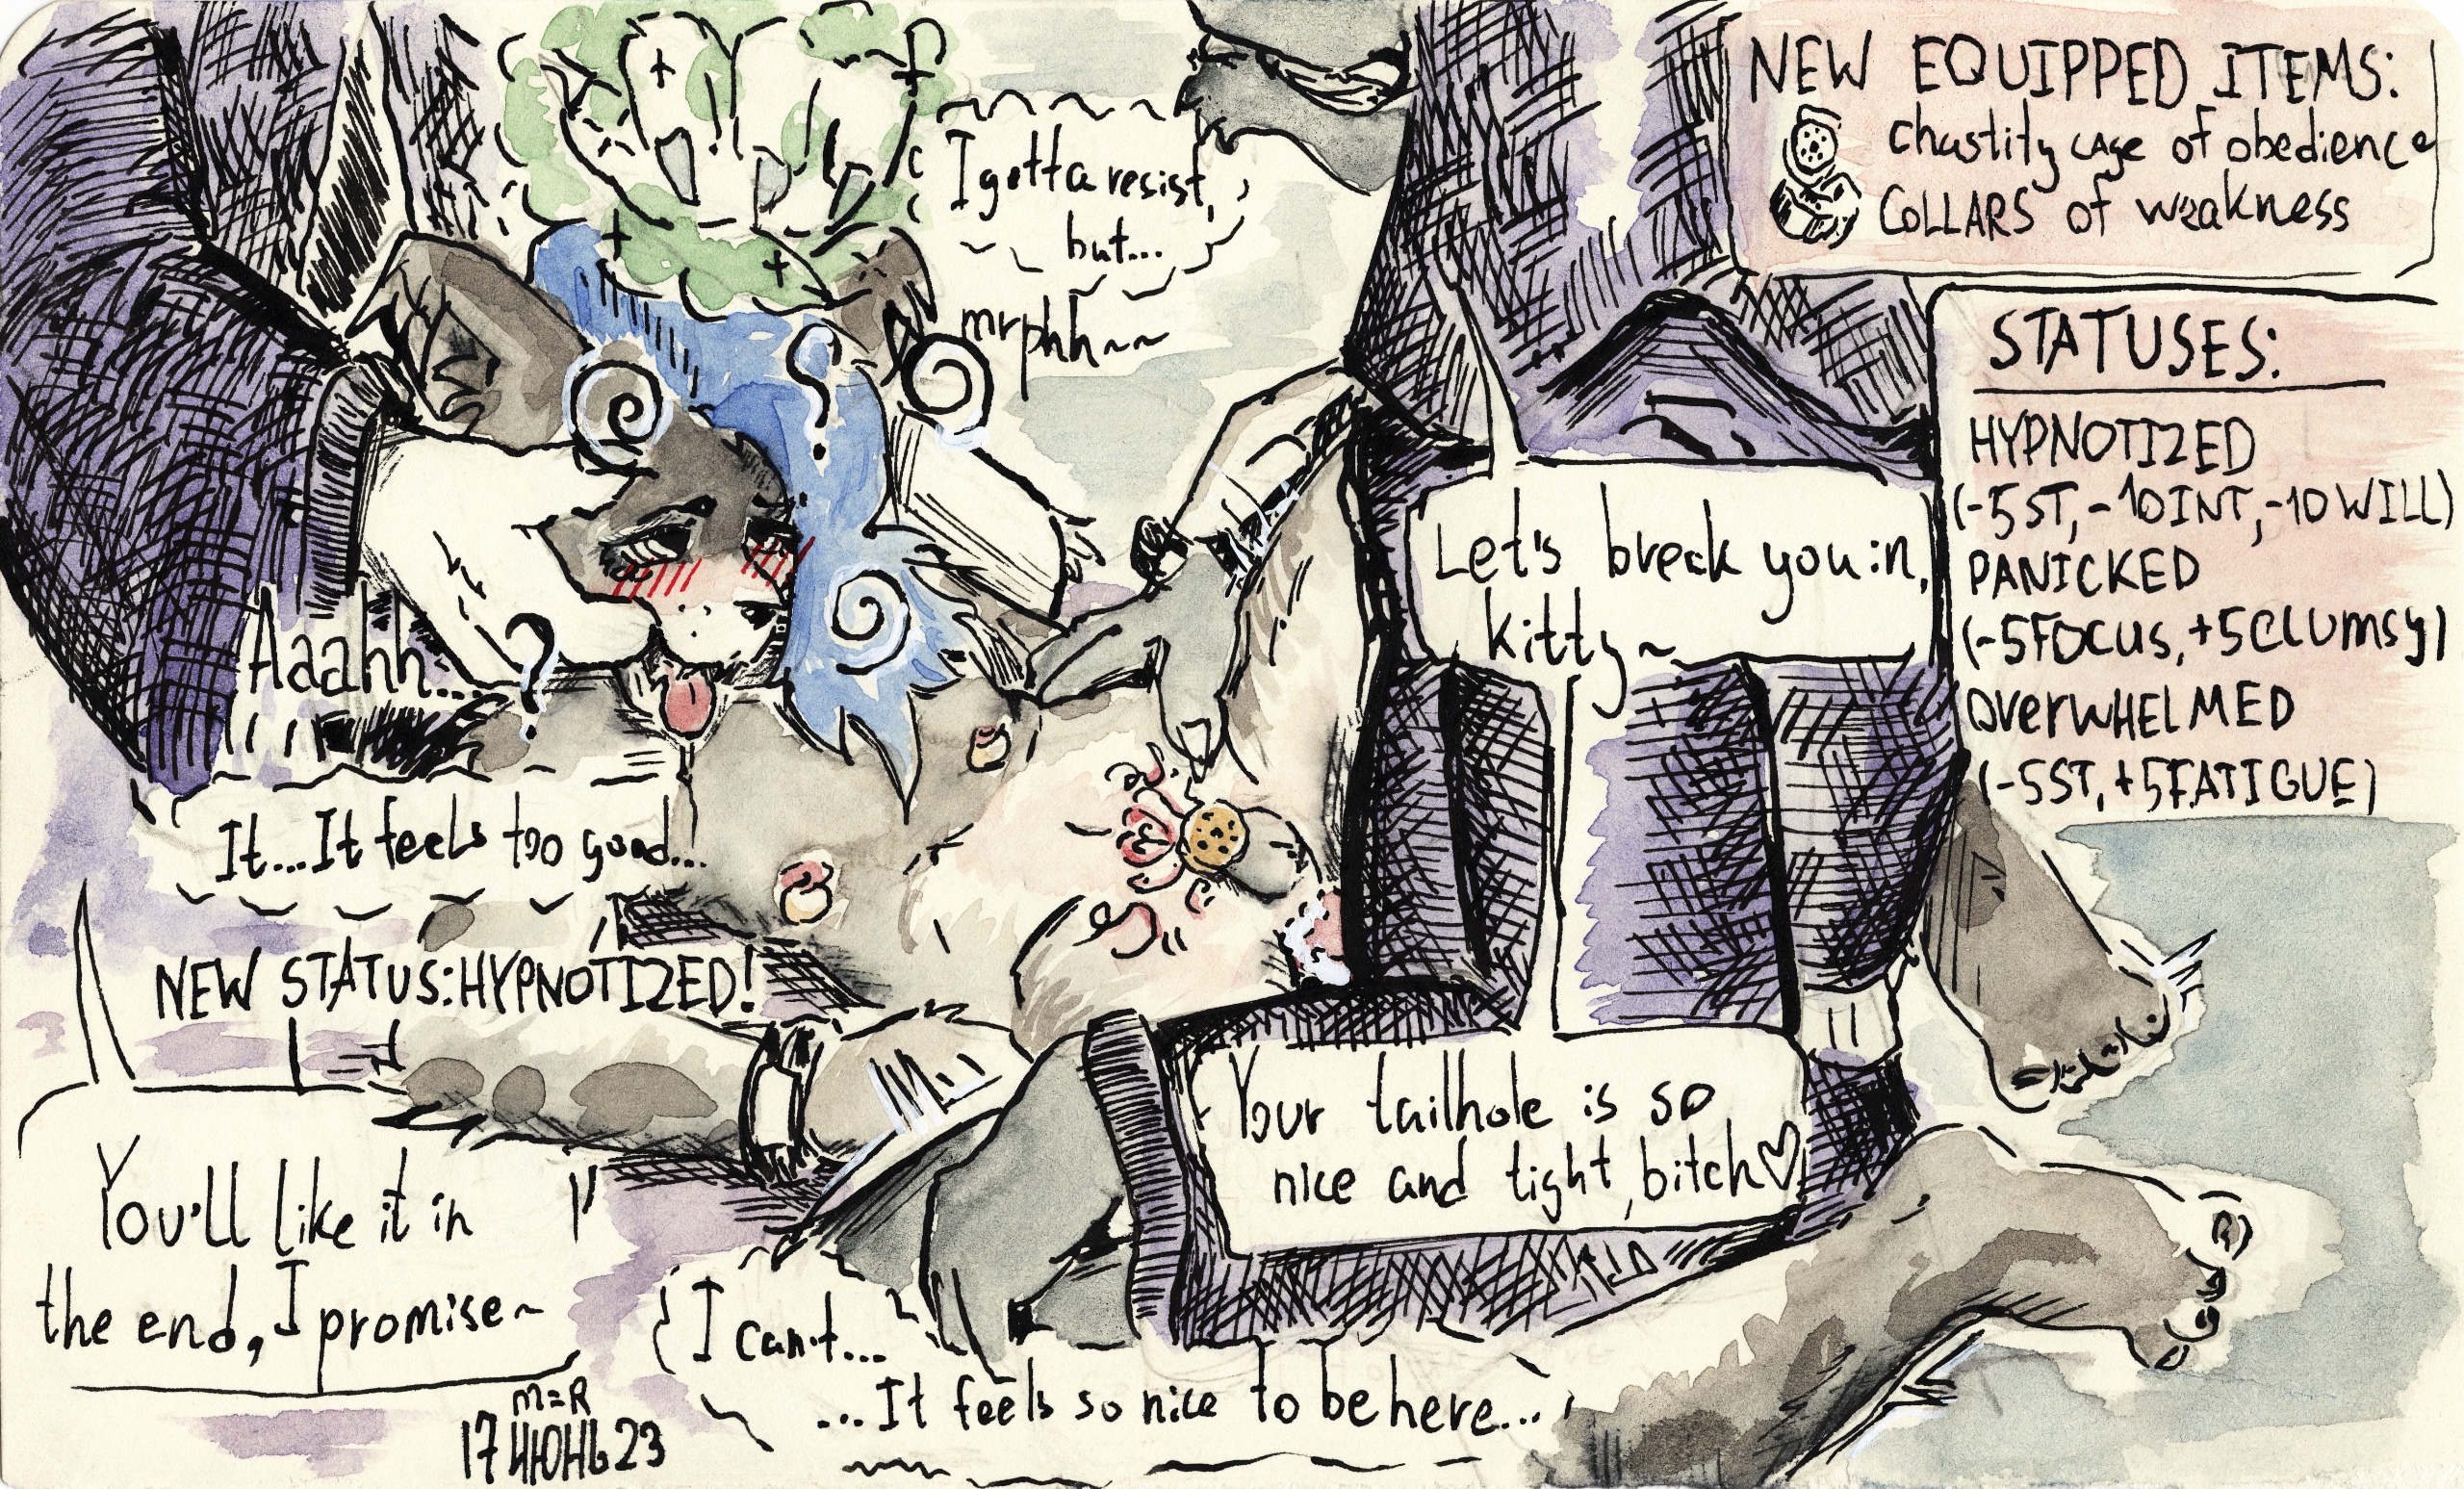 NEW EQUIPPED ITEMS:
chastity cage of obedience
COLLARS of weakness
I gotta resist,
but...
mrphh~~
STATUSES:
HYPNOTIZED
(-5ST, -10INT, -10WILL)
PANICKED
(-5FOCUS, +5CLUMSY)
OVERWHELMED
(-5ST, +5FATIGUE)
Let's break you in,
kitty~
Aaahh...
It...It feels too good...
NEW STATUS:HYPNOTIZED!
Your tailhole is so
nice and tight, bitch♡
You'll like it in
the end, I promise~
I can't...
...It feels so nice to be here...
m=R
17 ИЮНЬ 23